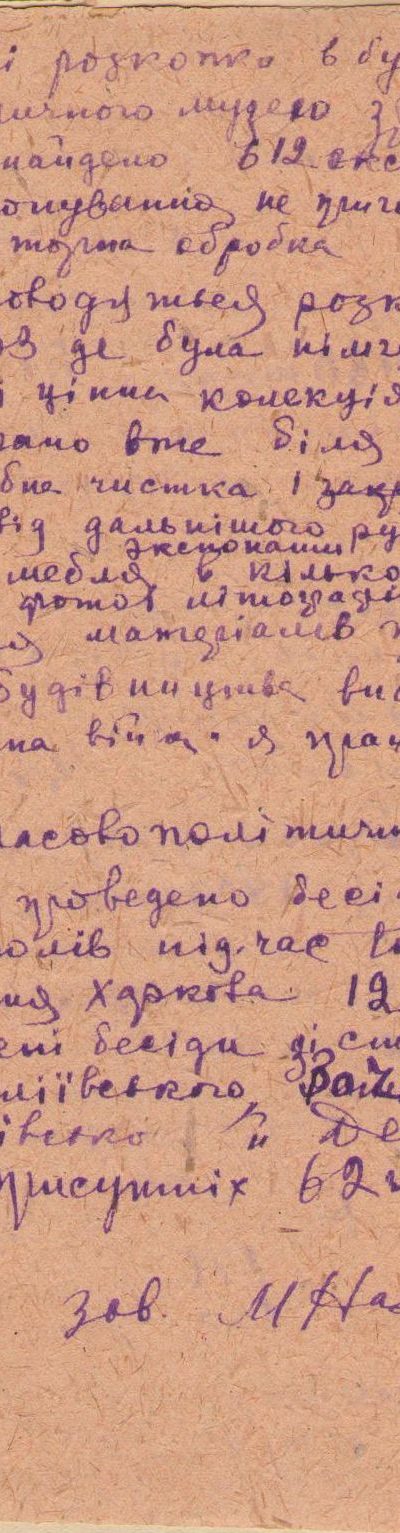 і розкопки в бу
ичного музею з
найдено 612 екс
онування, не приг
торна обробка
оводяться розк
де була німе
і цінна колекція
ано вже біля
бна чистка і закр
від дальнішого ру
експонати
мебля в кілько
фотої літографі
я матеріалів
будівництва ви
на війна. я прац
масовополітичн
проведено бесі
олів під час
ня Харкова 12
ені бесіди зі
міївського
івсько " Де
присутніх 62
зав. М На